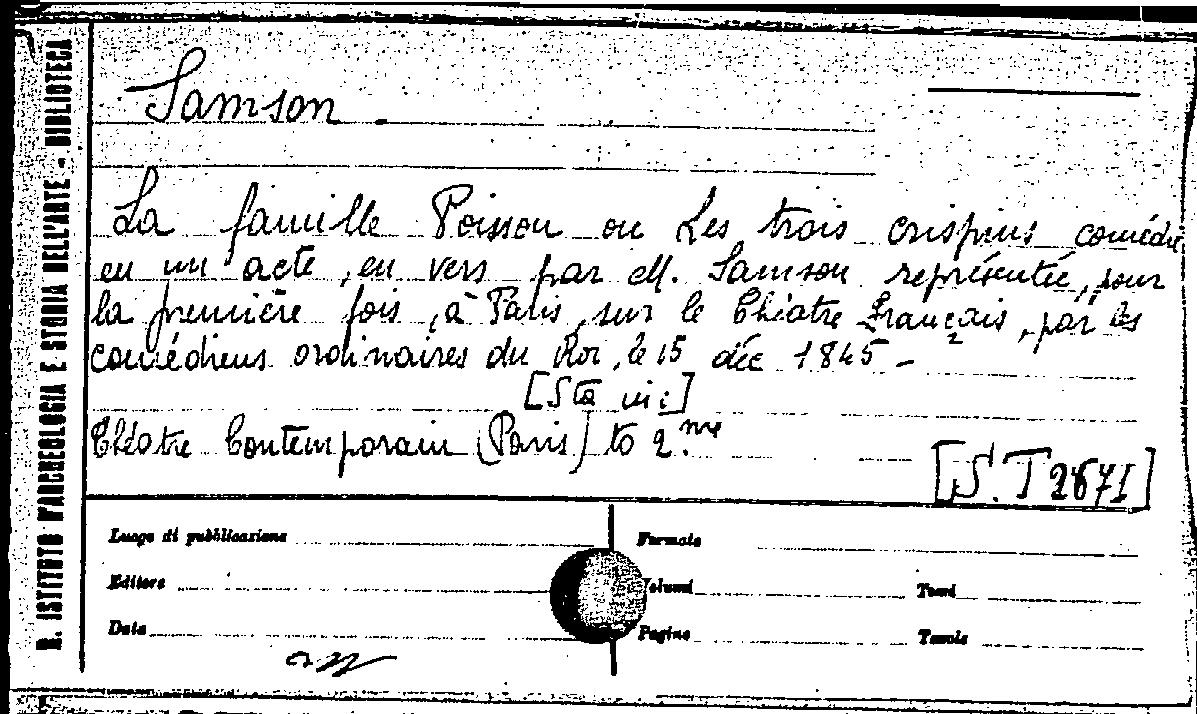 R. ISTITUTO D'ARCHEOLOGIA E STORIA DELL'ARTE - BIBLIOTECA
Samson
La famille Poisson ou Les trois crispins comédie
en un acte, en vers par M. Samson représentée, pour
la première fois, à Paris, sur le Théatre Français, par les
comédiens ordinaires du Roi, le 15 déc 1845 -
[Sta in:]
Théatre Contemporain (Paris) to 2.me
[S. T 2671]
Luogo di pubblicazione
Formato
Editore
Volumi
Tomi
Data
Pagine
Tavole